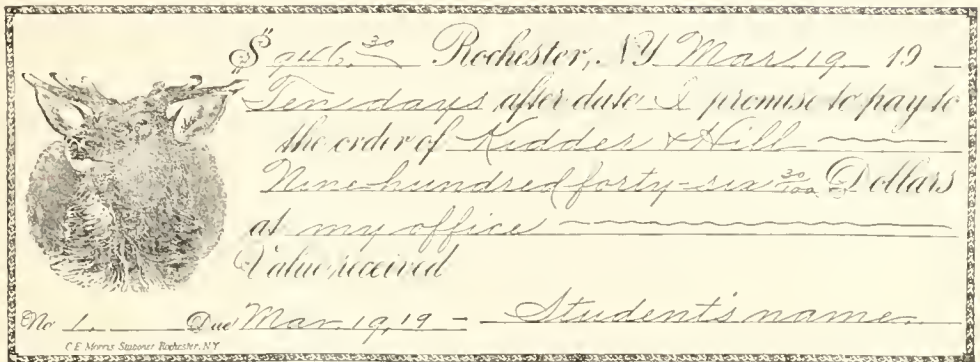 $ 946.30 Rochester, NY Mar. 19. 19 —
Ten days after date I promise to pay to
the order of Kidder & Hill
Nine hundred forty-six 30/100 Dollars
at my office
Value received
No 1. Due Mar. 19, 19 — Student's name
C E Morris Stationer Rochester, NY